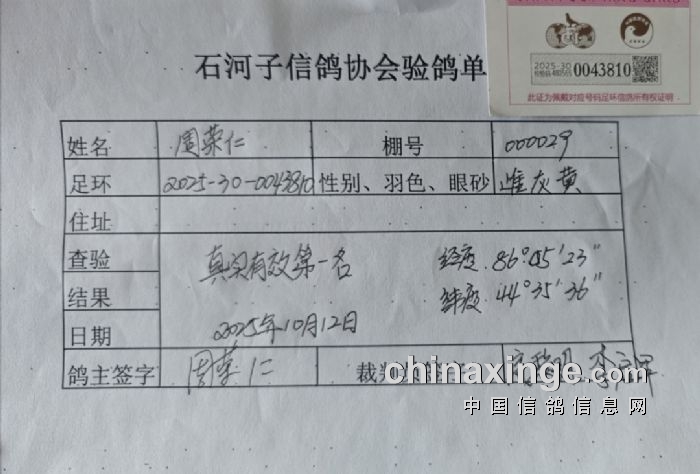 2025-30
0043810
此证为佩戴对应号码足环信鸽所有权证明
石河子信鸽协会验鸽单
姓名 周荣仁 棚号 000029
足环 2025-30-0043810 性别、羽色、眼砂 雌灰黄
住址
查验 真实有效第一名 经度.86°05'23"
结果 纬度.44°35'36"
日期 2025年10月12日
鸽主签字 周荣仁 裁判
chinaxinge.com
中国信鸽信息网